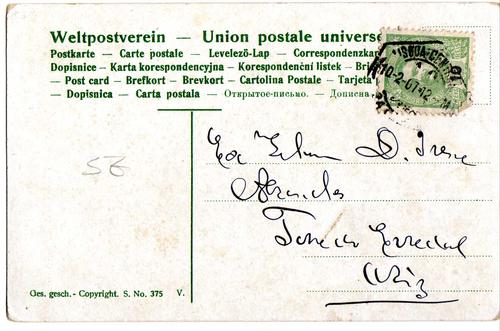 Weltpostverein — Union postale universe
Postkarte — Carte postale — Levelező-Lap — Correspondenzkar
Dopisnice — Karta korespondencyjna — Korespondenční listek — Bri
— Post card — Brefkort — Brevkort — Cartolina Postale — Tarjeta
— Dopisnica — Carta postala — Открытое-письмо. — Дописна
10-2-07
56
D. Irene
Ges. gesch. - Copyright. S. No. 375 V.